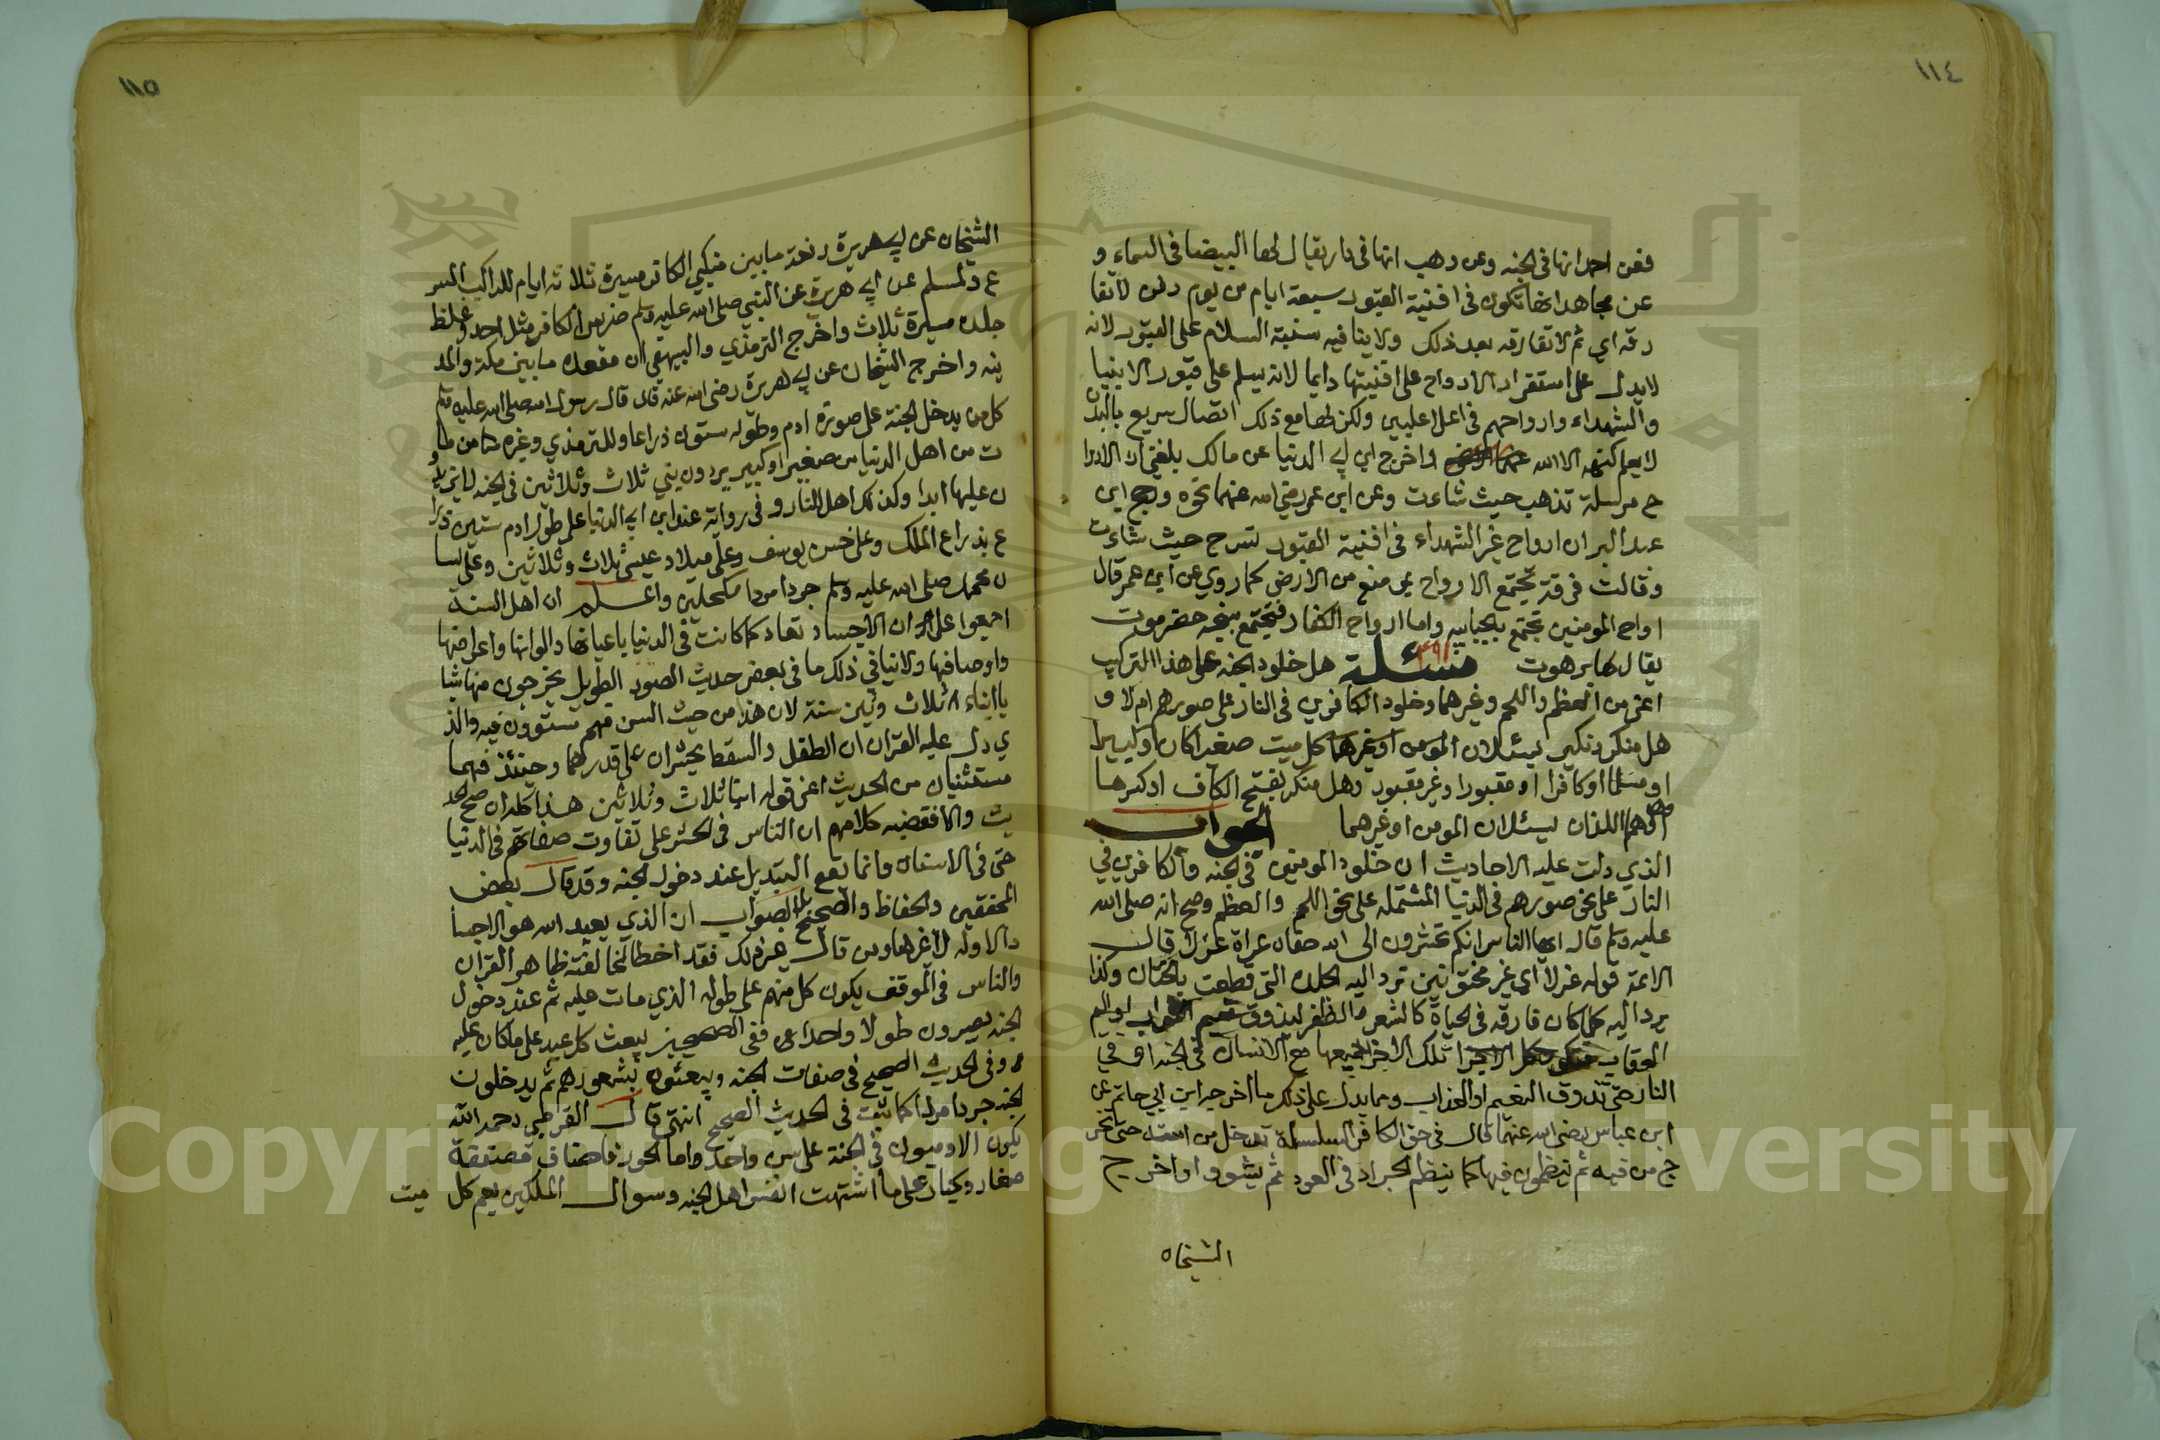 ١١٤
فعن احمد انها في الجنه وعن وهب انها في دار يقال لها البيضا في السماء و
عن مجاهد انها تكون في افنية القبور سبعة ايام من يوم دفن لا تفا
رقه اي ثم لا تفارقه بعد ذلك ولا ينافيه سنية السلام على القبور لانه
لا يدل على استقرار الارواح على افنيتها دايما لانه يسلم على قبور الانبيا
والشهداء وارواحهم في اعلا عليين ولكن لها مع ذلك اتصال سريع بالبدن
لا يعلم كنهه الا الله واخرج ابن ابي الدنيا عن مالك بلغني ان الاروا
ح مرسلة تذهب حيث شاءت وعن ابن عمر رضي الله عنهما نحوه ورجح ابن
عبد البر ان ارواح غير الشهداء في افنية القبور تسرح حيث شاءت
وقالت فرقة تجتمع الارواح بموضع من الارض كما روي عن ابن عمر قال
ارواح المومنين تجتمع بالجابيه واما ارواح الكفار فتجتمع بسبخه حضرموت
يقال لها برهوت مسئلة هل خلود الجنه على هذا التركيب
اعني من العظم واللحم وغيرهما وخلود الكافرين في النار على صورهم ام لا و
هل منكر ونكير يسئلان المومن او غيرهما كل ميت صغيرا كان او كبيرا
او مسلما او كافرا او مقبورا او غير مقبور وهل منكر بفتح الكاف او كسرها
وهل هم اللذان يسئلان المومن او غيرهما الجواب
الذي دلت عليه الاحاديث ان خلود المومنين في الجنه والكافرين في
النار على نحو صورهم في الدنيا المشتمله على نحو اللحم والعظم وصح انه صلى الله
عليه وسلم قال ايها الناس انكم تحشرون الى الله حفاه عراة غرلا قال
الائمة قوله غرلا اي غير مختونين ترد اليه الجلده التي قطعت بالختان وكذا
يرد اليه كلما كان فارقه في الحياة كالشعر والظفر ليذوق نعيم الثواب او اليم
العقاب تلك الاجزا جميعها مع الانسان في الجنه او في
النار حتى تذوق النعيم او العذاب ومما يدل على ذلك ما اخرجه ابن ابي حاتم عن
ابن عباس رضي الله عنهما قال في حق الكافر السلسلة تدخل من استه حتى تخر
ج من فيه ثم ينظمون فيها كما ينظم الجراد في العود ثم يشووا واخرج
الشيخان
١١٥
الشيخان عن ابي هريرة رفعه ما بين منكبي الكافر مسيرة ثلاثه ايام للراكب المسر
ع ولمسلم عن ابي هريرة عن النبي صلى الله عليه وسلم ضرس الكافر مثل احد وغلظ
جلده مسيرة ثلاث واخرج الترمذي والبيهقي ان مقعده ما بين مكة والمد
ينه واخرج الشيخان عن ابي هريرة رضي الله عنه قال قال رسول الله صلى الله عليه وسلم
كل من يدخل الجنة على صورة ادم وطوله ستون ذراعا وللترمذي وغيره من ما
ت من اهل الدنيا من صغير او كبير يردون بني ثلاث وثلاثين في الجنه لا يزيدو
ن عليها ابدا وكذلك اهل النار وفي رواية عند ابن ابي الدنيا على طول ادم ستين ذرا
ع بذراع الملك وعلى حسن يوسف وعلى ميلاد عيسى ثلاث وثلاثين وعلى لسا
ن محمد صلى الله عليه وسلم جردا مردا مكحلين واعلم ان اهل السنة
اجمعوا على ان الاجساد تعاد كما كانت في الدنيا باعيانها والوانها واعراضها
واوصافها ولا ينافي ذلك ما في بعض حديث الصور الطويل يخرجون منها شبا
با ابناء ثلاث وثلاثين سنة لان هذا من حيث السن فهم مستوون فيه والذ
ي دل عليه القران ان الطفل والسقط يحشران على قدرهما وحينئذ فهما
مستثنيان من الحديث اعني قوله ابنا ثلاث وثلاثين هذا كله ان صح الحد
يث والا فقضيه كلامهم ان الناس في الحشر على تفاوت صفاتهم في الدنيا
حتى في الاسنان وانما يقع التبديل عند دخول الجنه وقد قال بعض
المحققين والحفاظ والصحيح بل الصواب ان الذي يعيد الله هو الاجسا
د الاوله لا غيرها ومن قال غير ذلك فقد اخطا لمخالفته ظاهر القران
والناس في الموقف يكون كل منهم على طوله الذي مات عليه ثم عند دخول
الجنه يصيرون طولا واحدا ففي الصحيحين يبعث كل عبد على ما كان عليه
وفي الحديث الصحيح في صفات الجنه ويبعثون بشعورهم ثم يدخلون
الجنه جردا مردا كما ثبت في الحديث الصحيح انتهى قال القرطبي رحمه الله
يكون الادميون في الجنة على سن واحد واما الحور فاصناف مصنفة
صغار وكبار على ما اشتهت انفس اهل الجنه وسوال الملكين يعم كل ميت
Copyright © King Saud University